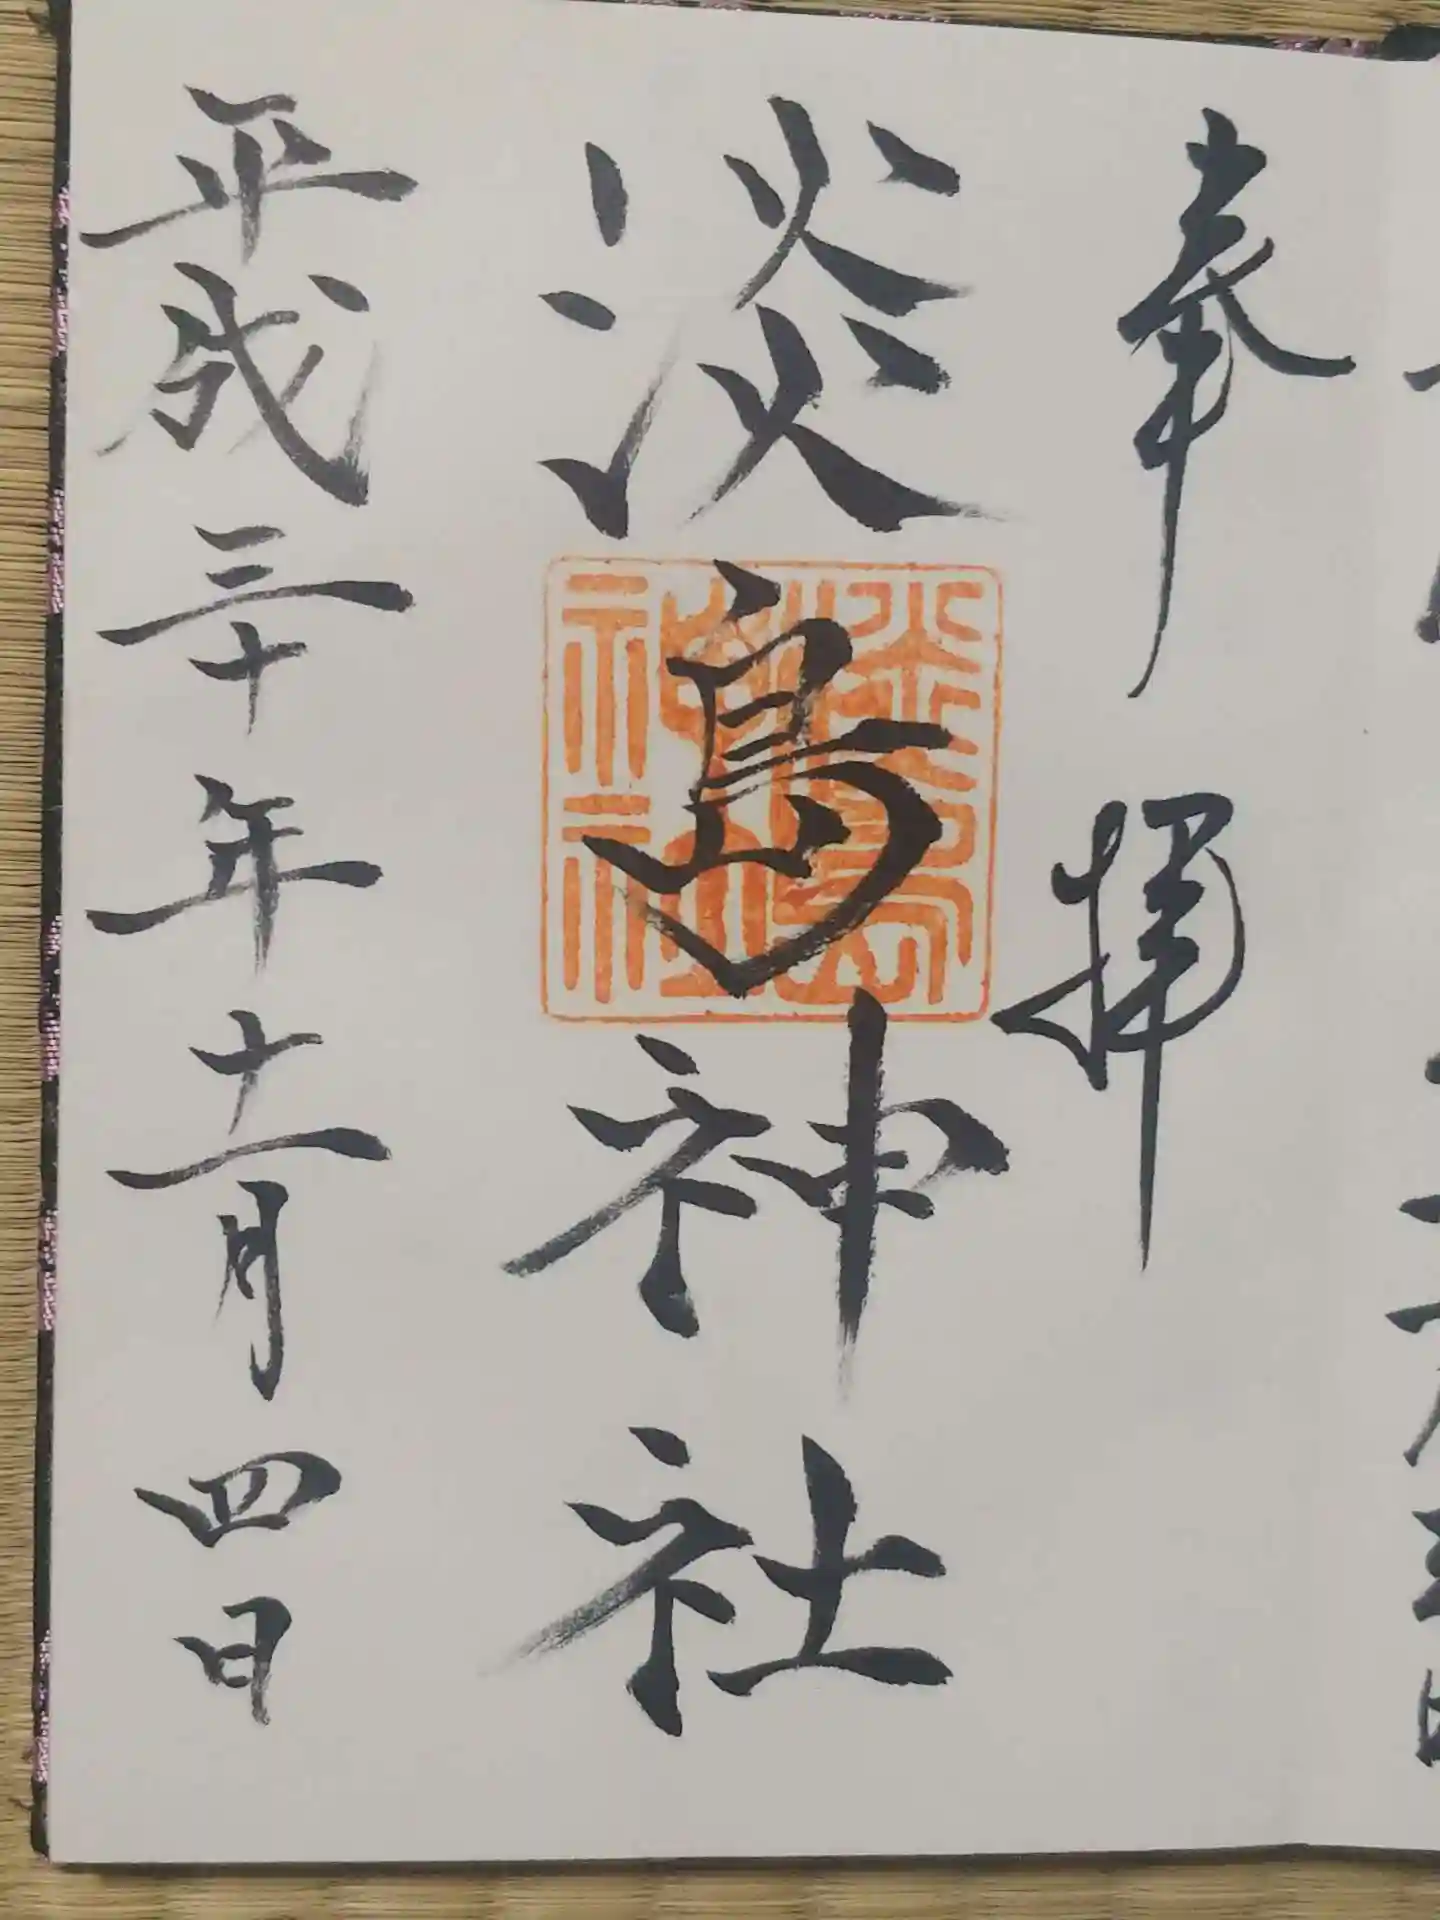 奉拝
淡嶋神社
平成三十年十一月四日